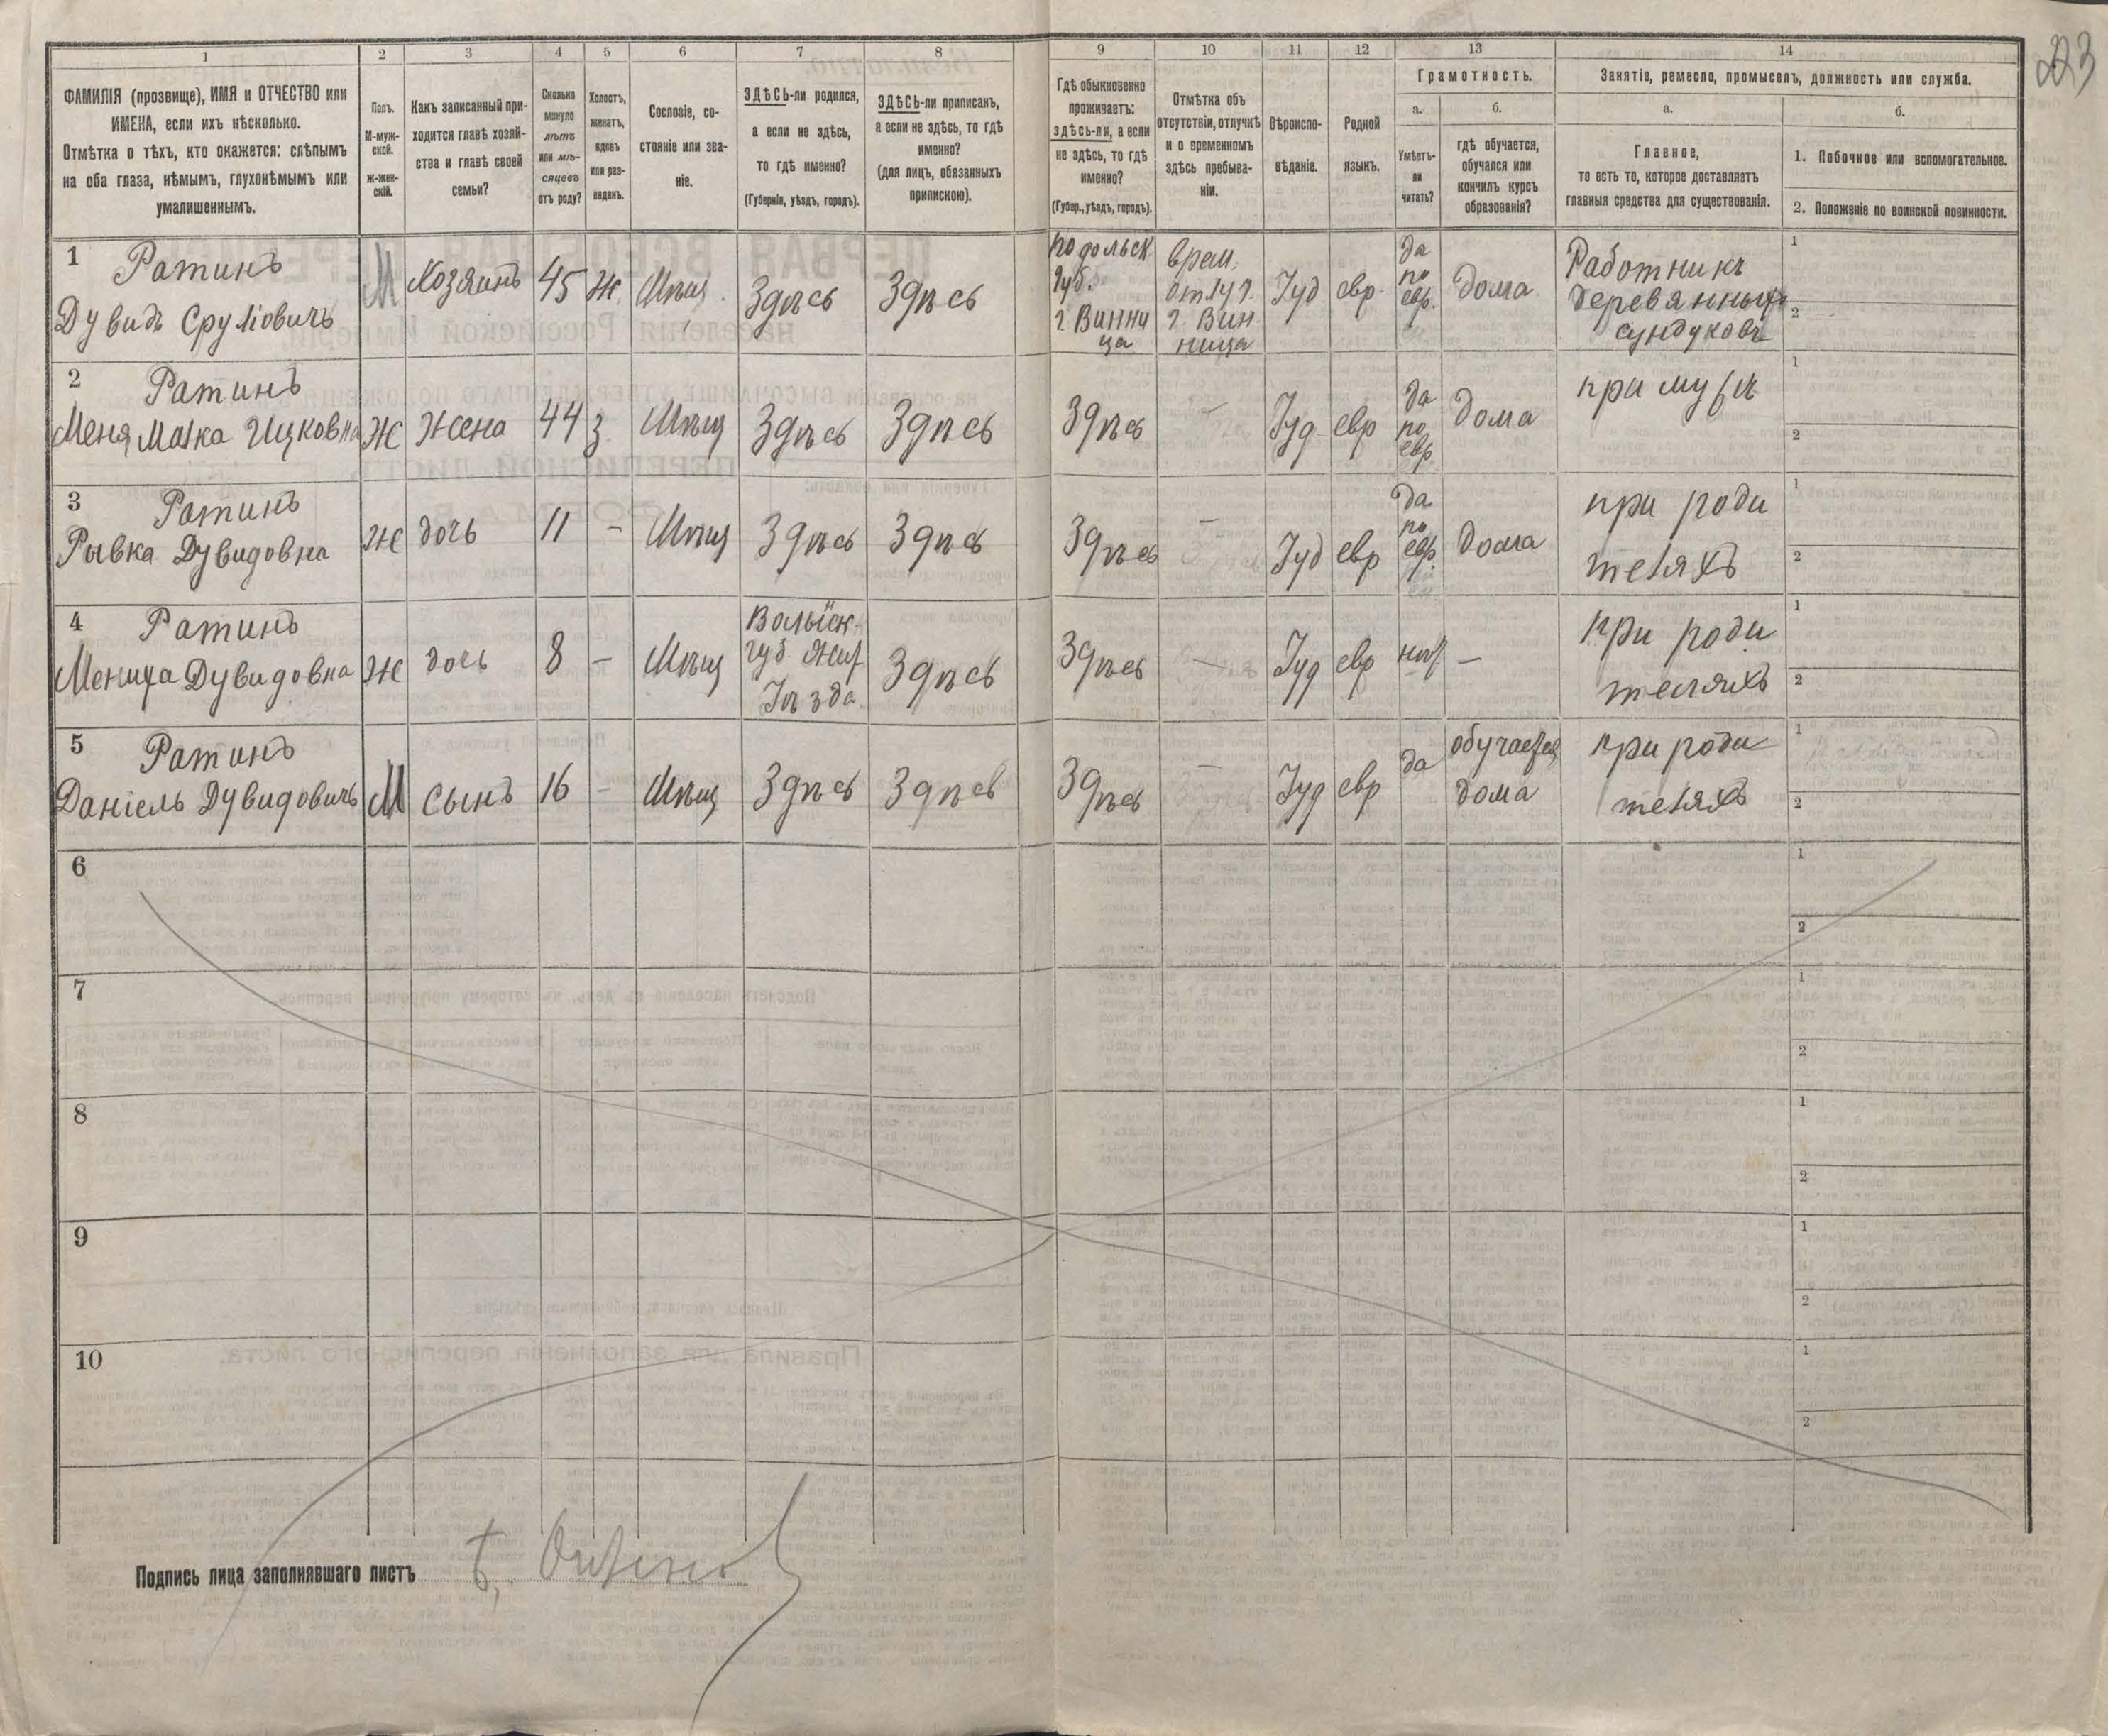 223
1 2 3 4 5 6 7 8 9 10 11 12 13 14
ФАМИЛІЯ (прозвище), ИМЯ и ОТЧЕСТВО или
ИМЕНА, если ихъ нѣсколько.
Отмѣтка о тѣхъ, кто окажется: слѣпымъ
на оба глаза, нѣмымъ, глухонѣмымъ или
умалишеннымъ.
Полъ.
М-муж-
ской.
Ж-жен-
скій.
Какъ записанный при-
ходится главѣ хозяй-
ства и главѣ своей
семьи?
Сколько
минуло
лѣтъ
или мѣ-
сяцевъ
отъ роду?
Холостъ,
женатъ,
вдовъ
или раз-
веденъ.
Сословіе, со-
стояніе или зва-
ніе.
ЗДѢСЬ-ли родился,
а если не здѣсь,
то гдѣ именно?
(Губернія, уѣздъ, городъ).
ЗДѢСЬ-ли приписанъ,
а если не здѣсь, то гдѣ
именно?
(для лицъ, обязанныхъ
припискою).
Гдѣ обыкновенно
проживаетъ:
здѣсь-ли, а если
не здѣсь, то гдѣ
именно?
(Губер., уѣздъ, городъ).
Отмѣтка объ
отсутствіи, отлучкѣ
и о временномъ
здѣсь пребыва-
ніи.
Вѣроиспо-
вѣданіе.
Родной
языкъ.
Грамотность.
а.
Умѣетъ-
ли
читать?
б.
гдѣ обучается,
обучался или
кончилъ курсъ
образованія?
Занятіе, ремесло, промыселъ, должность или служба.
а.
Главное,
то есть то, которое доставляетъ
главныя средства для существованія.
б.
1. Побочное или вспомогательное.
2. Положеніе по воинской повинности.
1
Ратинъ
Дувидъ Сруліовичъ
М
Хозяинъ
45
Ж.
Мѣщ.
Здѣсь
Здѣсь
Подольск
Губ.
г. Винни
ца
Врем.
отлуч.
г. Вин
ница
Іуд
евр.
да
по
евр.
дома
Работникъ
деревянныхъ
сундуковъ
1
2
2
Ратинъ
Меня Малка Ицковна
Ж
Жена
44
З.
Мѣщ
Здѣсь
Здѣсь
Здѣсь
—
Іуд
евр
да
по
евр
дома
при мужѣ
1
2
3
Ратинъ
Рывка Дувидовна
Ж
дочь
11
-
Мѣщ
Здѣсь
Здѣсь
Здѣсь
—
Іуд
евр
да
по
евр.
дома
при роди
теляхъ
1
2
4
Ратинъ
Мениха Дувидовна
Ж
дочь
8
—
Мѣщ
Волынск.
губ. Жит
Уѣзда
Здѣсь
Здѣсь
—
Іуд
евр
нѣт
—
при роди
теляхъ
1
2
5
Ратинъ
Даніель Дувидовичъ
М
Сынъ
16
-
Мѣщ
Здѣсь
Здѣсь
Здѣсь
—
Іуд
евр
да
обучается
дома
при роди
теляхъ
1
2
6
1
2
7
1
2
8
1
2
9
1
2
10
1
2
Подпись лица заполнявшаго листъ